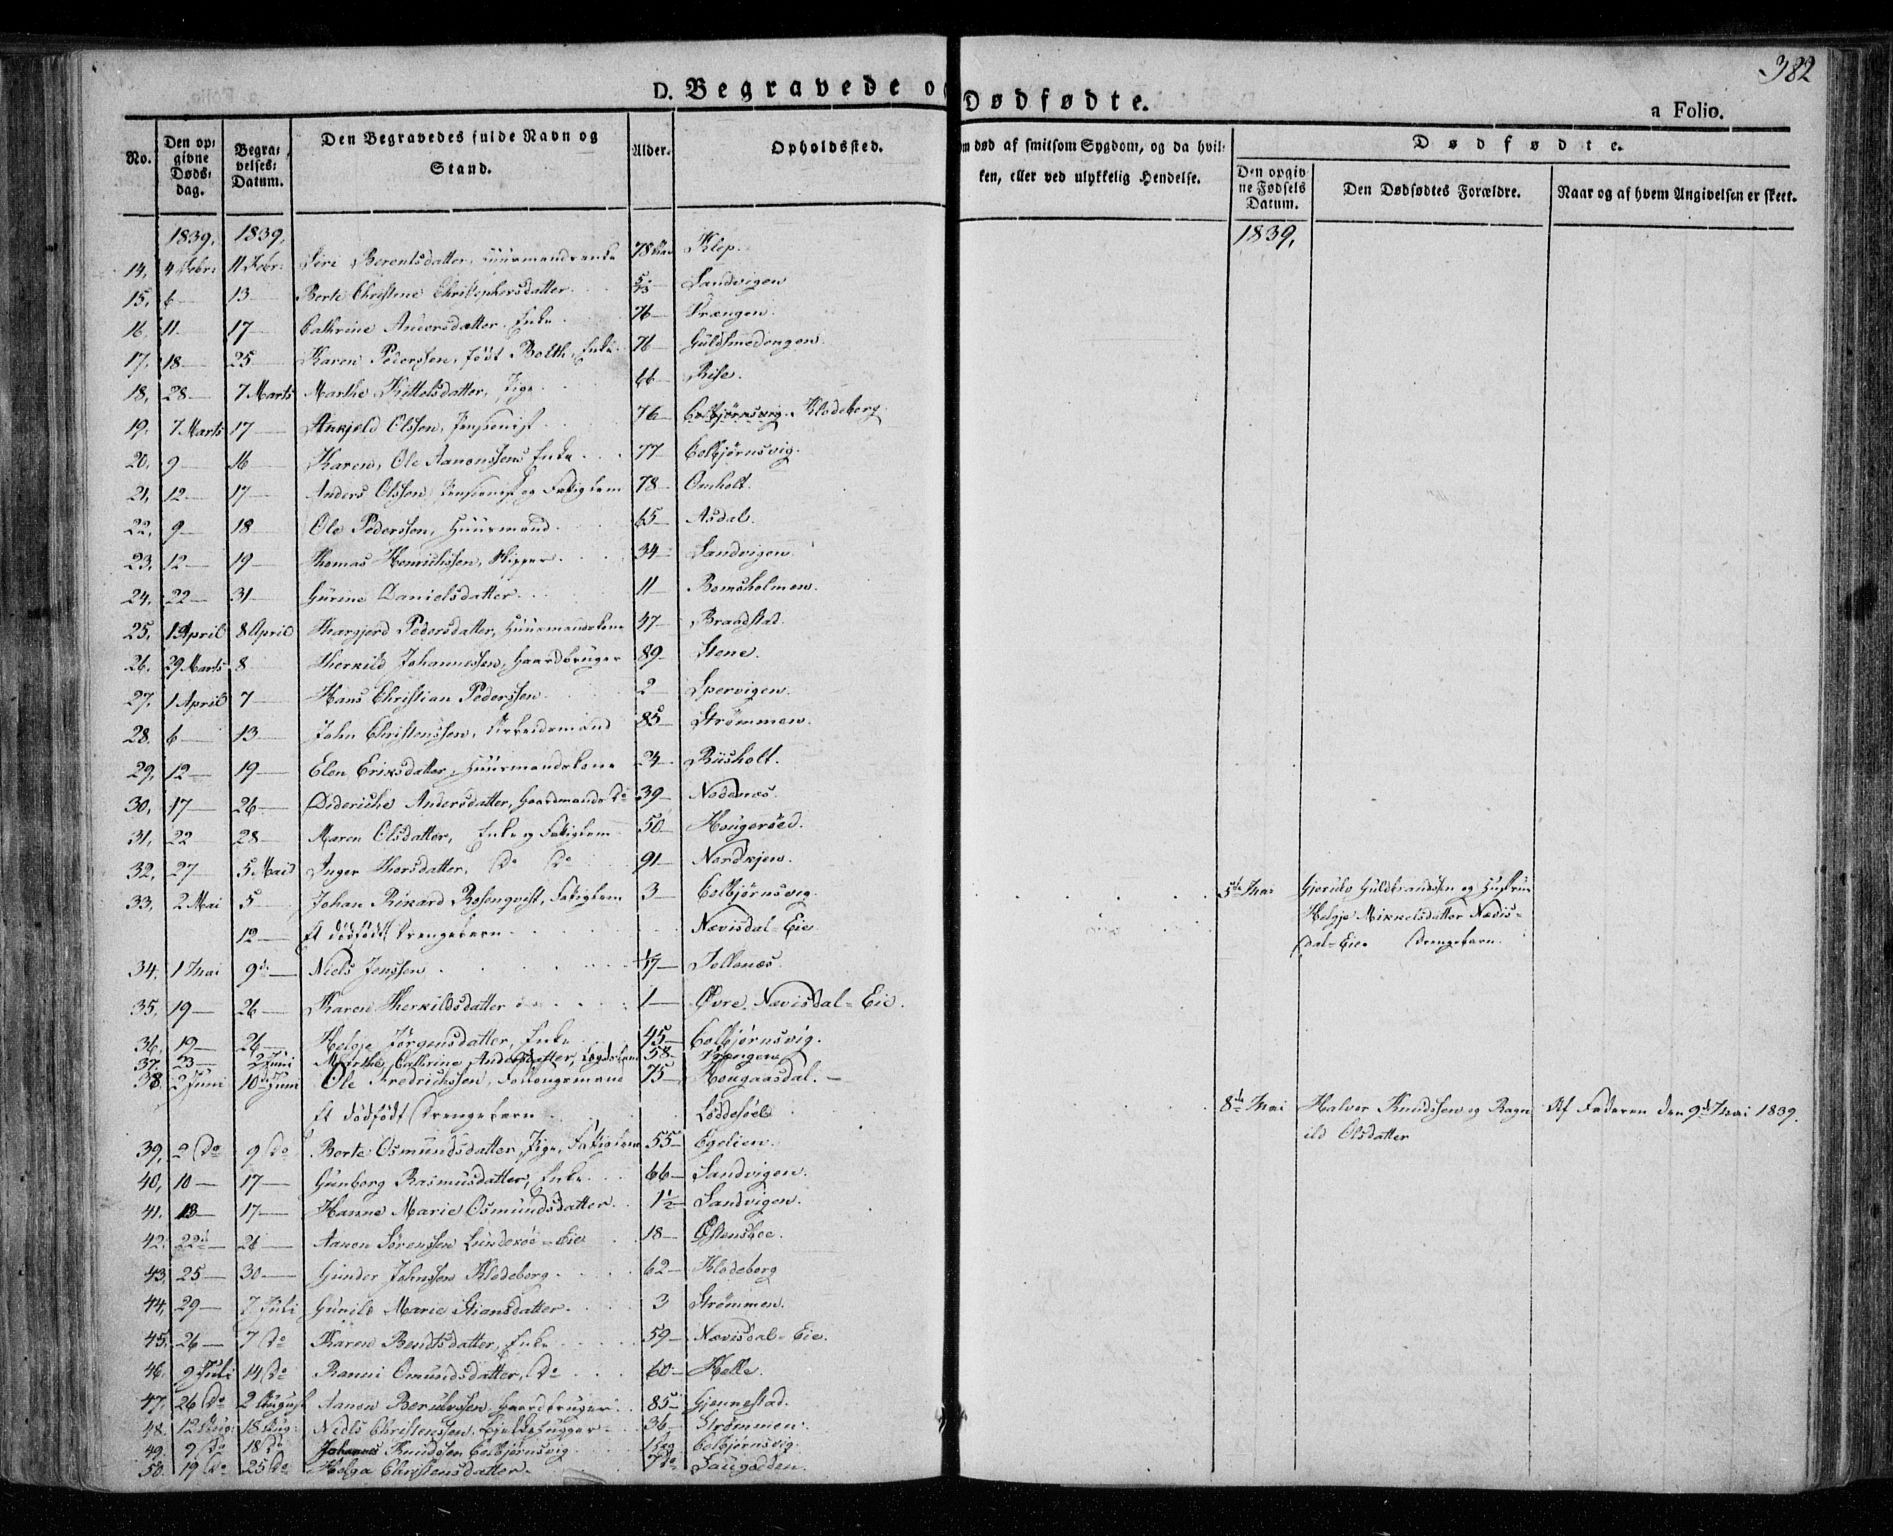 382
D. Begravede o Dødfødte.
a Folio.
No. Den opgivne Dødsdag. Begravelses-Datum. Den Begravedes fulde Navn og Stand. Alder. Opholdssted. m død af smitsom Sygdom, og da hvilken, eller ved ulykkelig Hendelse. Dødfødte.
Den opgivne Fødsels Datum. Den Dødfødtes Forældre. Naar og af hvem Angivelsen er skeet.
1839. 1839. 1839,
14. 4 Febr: 11 Febr: Siri Berentsdatter, Huusmandsenke 78 Klep.
15. 6 13 Berte Christine Christophersdatter Sandvigen
16. 11 17 Cathrine Andersdatter. Enke 76 Vrængen.
17. 18 25 Karen Pederssen, født Boeth, Enke 71 Guldsmedengen.
18. 28 7 Marts Marthe Kittelsdatter, Pige 66 Rise.
19. 7 Marts 17 Ankjeld Olssen, Pensionist 76 Colbjørnsvig. Klodeberg.
20. 9 16 Karen, Ole Aanonssens Enke 77 Colbjørnsvig.
21. 12 17 Anders Olssen, Pensionist og Fattiglem 78 Omholt.
22. 9 18 Ole Pederssen, Huusmand 65 Asdal.
23. 12 19 Thomas Henrichssen, Skipper 34 Sandvigen.
24. 22 31 Gurine Danielsdatter 11 Bomsholmen.
25. 1 April 8 April Thargjerd Pedersdatter, Huusmandskone 47 Braastad.
26. 29 Marts 8 Therkild Johannessen, Gaardbruger 89 Stene.
27. 1 April 7 Hans Christian Pederssen 2 Spervigen.
28. 6 13 John Christenssen, Arbeidsmand 85 Strømmen.
29. 12 19 Elen Eriksdatter, Huusmandskone 24 Biisholt.
30. 17 26 Dideriche Andersdatter, Gaardmands Do 39 Neddenæs.
31. 22 28 Maren Olsdatter, Enke og Fattiglem 50 Hougerøed.
32. 27 5 Mai Inger Thorsdatter, Do Do 91 Nordkjen.
33. 2 Mai 5 Johan Rikard Rosenqvist, Fattiglem 3 Colbjørnsvig 5te Mai Gjerulv Guldbrandssen og Hustrue
12 Et dødfødt Drengebarn Nævisdal-Eie Helgje Mikkelsdatter Nævis-
dal-Eie. Drengebarn.
34. 1 Mai 9de Niels Jenssen 17 Tellenæs.
35. 19 26 Karen Therkildsdatter 1 Øvre Nævisdal-Eie.
36. 19 26 Helgje Jørgensdatter, Enke 45 Colbjørnsvig.
37. 23 2 Juni Marthe Cathrine Andersdatter, 58 Vrengen
38. 2 Juni 10de Juni Ole Fredrichssen, 75 Hougaasdal.
Et dødfødt Drengebarn Løddesøeld 8de Mai Halvor Knudssen og Ragn- Af Faderen den 9de Mai 1839.
ild Olsdatter
39. 2 Do 9 Do Berte Osmundsdatter, Pige, Fattiglem 55 Egelien.
40. 10 17 Gunborg Rasmusdatter, Enke 66 Sandvigen.
41. 13 17 Hanne Marie Osmundsdatter 1½ Sandvigen.
42. 22de 26 Aanon Sørenssen Lundekøe-Eie 18 Østensboe.
43. 25 30 Gunder Johnssen Klodeborg 62 Klodeborg
44. 29 7 Juli Gunild Marie Stiansdatter 3 Strømmen.
45. 26 7 Do Karen Bendtsdatter, Enke 59 Nævisdal-Eie.
46. 9 Juli 14 Do Ranni Omundsdatter, Do 60 Helle.
47. 26 Do 2 August Aanon Berulvssen, Gaardbruger 85 Gjennestad.
48. 12 Aug: 18 Aug: Niels Christenssen, 36 Strømmen.
49. 9 Do 18 Do Johannes Knudssen Colbjørnsvig Colbjørnsvig.
50. 19 Do 25 Do Helga Christensdatter